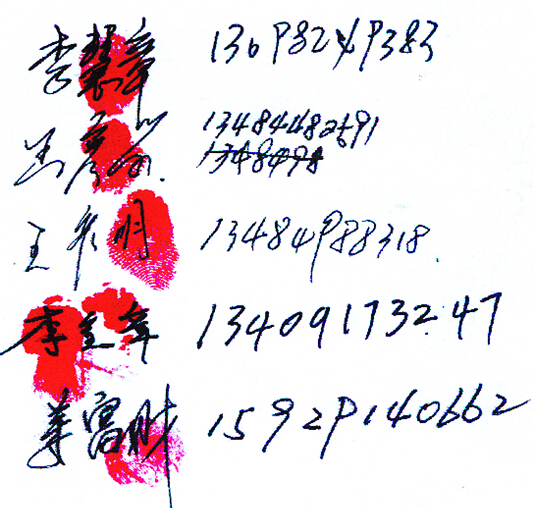 李慧 13098249383
13484482691
1348498
王 明 13484988318
李 13409173247
富财 15929140662